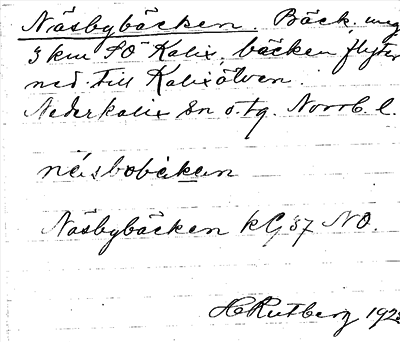 Näsbybäcken. Bäck. mag
3 km SO Kalix, bäcken flyter
ned till Kalixälven.
Nederkalix sn o. tg. Norrb. l.
näsbobäkan
Näsbybäcken kG 37 NO.
H Rutberg 192